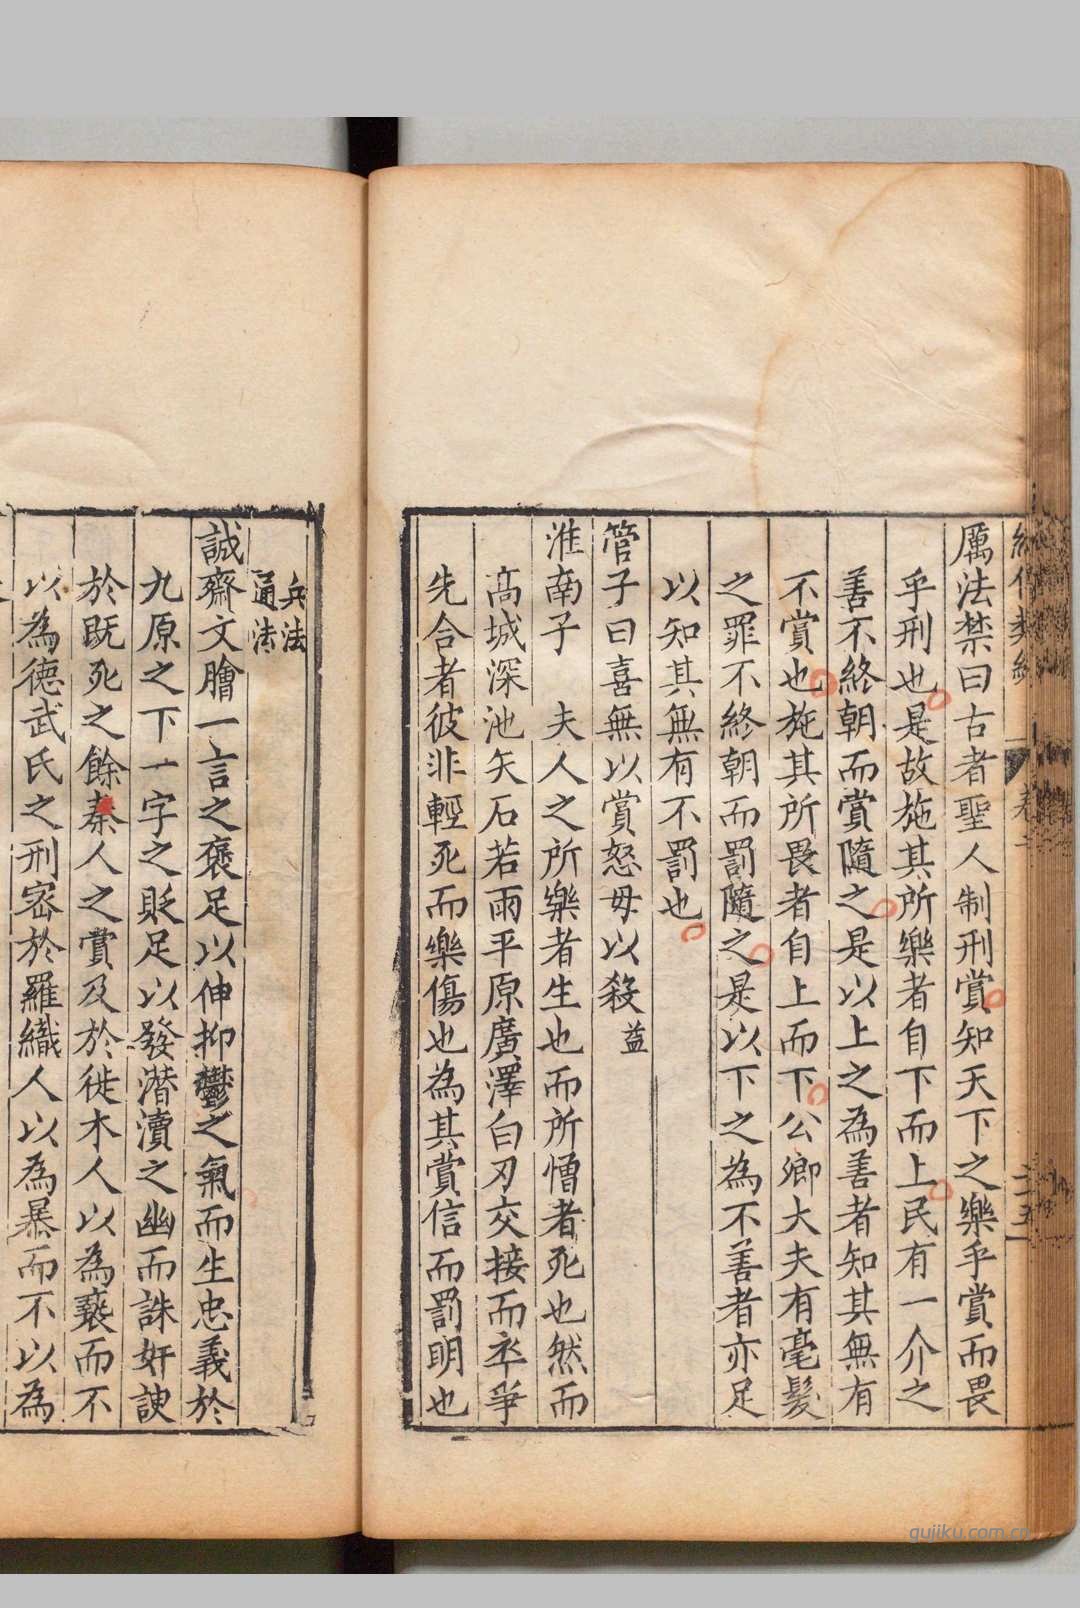 厲法禁曰古者聖人制刑賞知天下之樂乎賞而畏
乎刑也是故施其所樂者自下而上民有一介之
善不終朝而賞隨之是以上之為善者知其無有
不賞也施其所畏者自上而下公卿大夫有毫髮
之罪不終朝而罰隨之是以下之為不善者亦足
以知其無有不罰也
管子曰喜無以賞怒毋以殺 益
淮南子 夫人之所樂者生也而所憎者死也然而
高城深池矢石若雨平原廣澤白刃交接而卒爭
先合者彼非輕死而樂傷也為其賞信而罰明也
兵法
通法
誠齋文膾一言之褒足以伸抑鬱之氣而生忠義於
九原之下一字之貶足以發潛瀆之幽而誅奸諛
於既死之餘秦人之賞及於徙木人以為褻而不
以為德武氏之刑密於羅織人以為暴而不以為
gujiku.com.cn